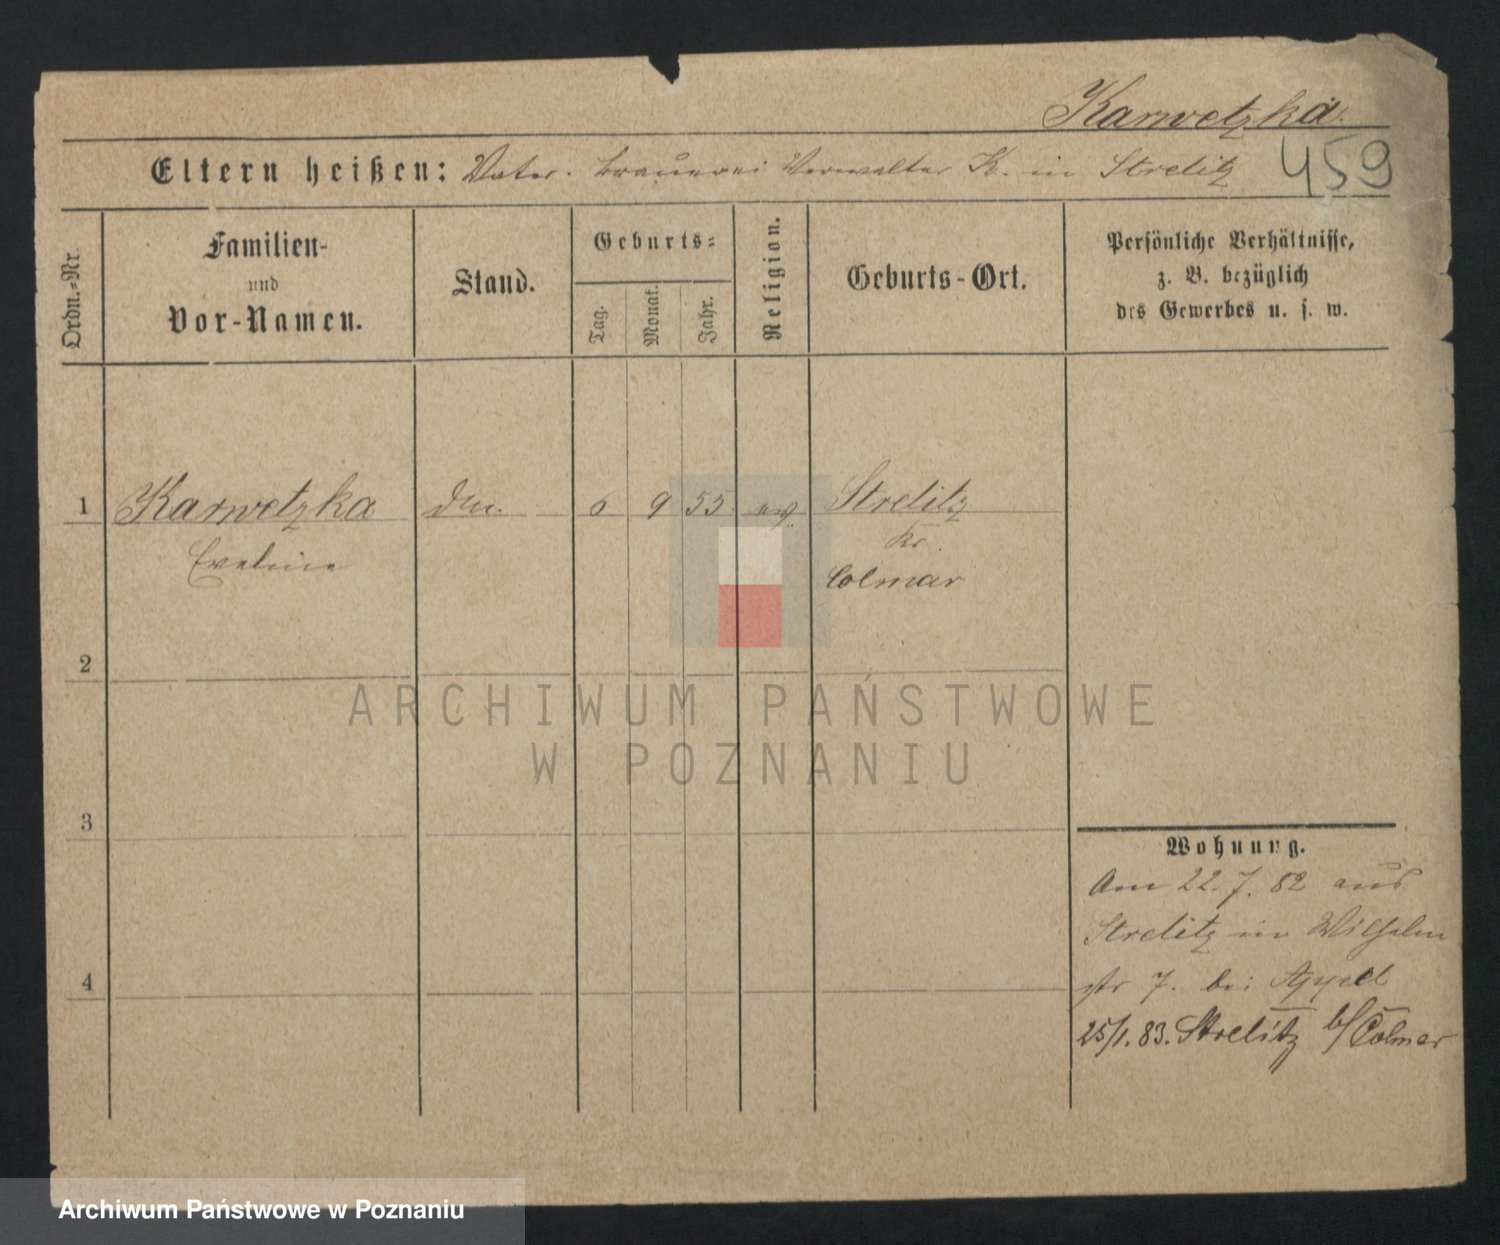 Karwetzka.
Eltern heißen: Vater. Brauerei Verwalter K. in Strelitz
459
Ordn.-Nr.
Familien-
und
Vor-Namen.
Stand.
Geburts-
Tag.
Monat.
Jahr.
Religion.
Geburts-Ort.
Persönliche Verhältnisse,
z. B. bezüglich
des Gewerbes u. s. w.
1 Karwetzka 6 9 55 ev. Strelitz
Eveline Kr.
Colmar
2
3
4
Wohnung.
Am 22.7.82 aus
Strelitz in Wilhelm
str 7. bei Appel
25/1.83. Strelitz b/Colmar
ARCHIWUM PAŃSTWOWE
W POZNANIU
Archiwum Państwowe w Poznaniu